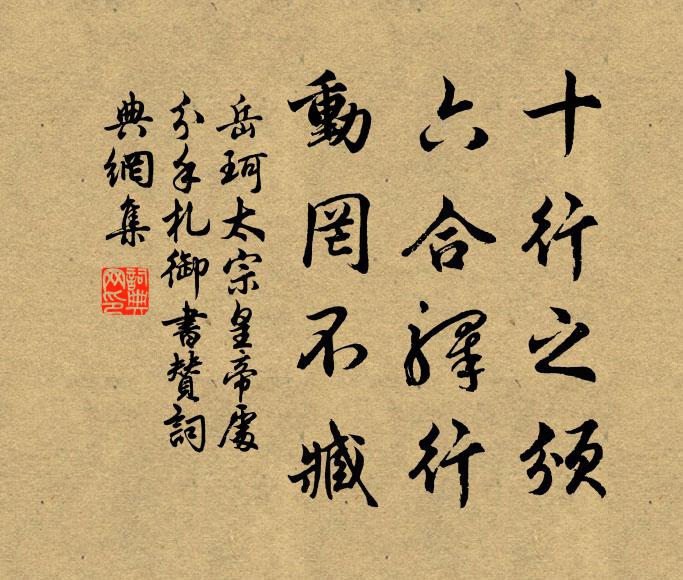 十行之頒
六合驛行
動罔不臧
岳珂太宗皇帝處
分手札御書贊詞
典網集
詞典網印